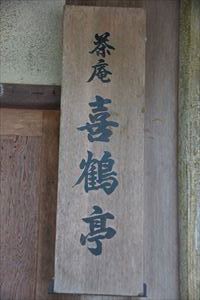 茶庵
喜鶴亭